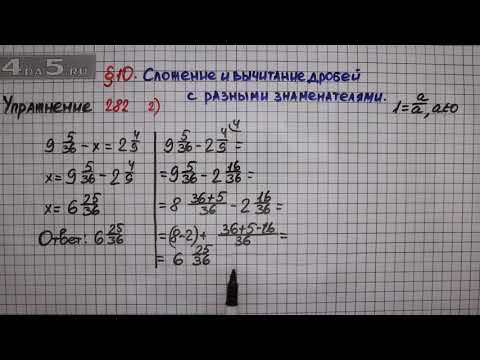 4DA5.RU
§10. Сложение и вычитание дробей
с разными знаменателями.
Упражнение 282 г)
1 = a/a, a≠0
9 5/36 - x = 2 4/9
x = 9 5/36 - 2 4/9
x = 6 25/36
Ответ: 6 25/36
9 5/36 - 2 4/9 ^4 =
= 9 5/36 - 2 16/36 =
= 8 (36+5)/36 - 2 16/36 =
= (8-2) + (36+5-16)/36 =
= 6 25/36